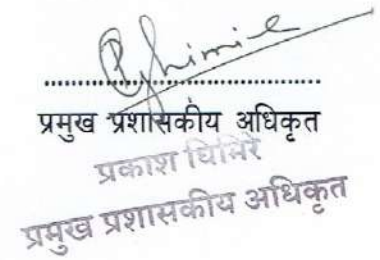 Pghimire
प्रमुख प्रशासकीय अधिकृत
प्रकाश घिमिरे
प्रमुख प्रशासकीय अधिकृत